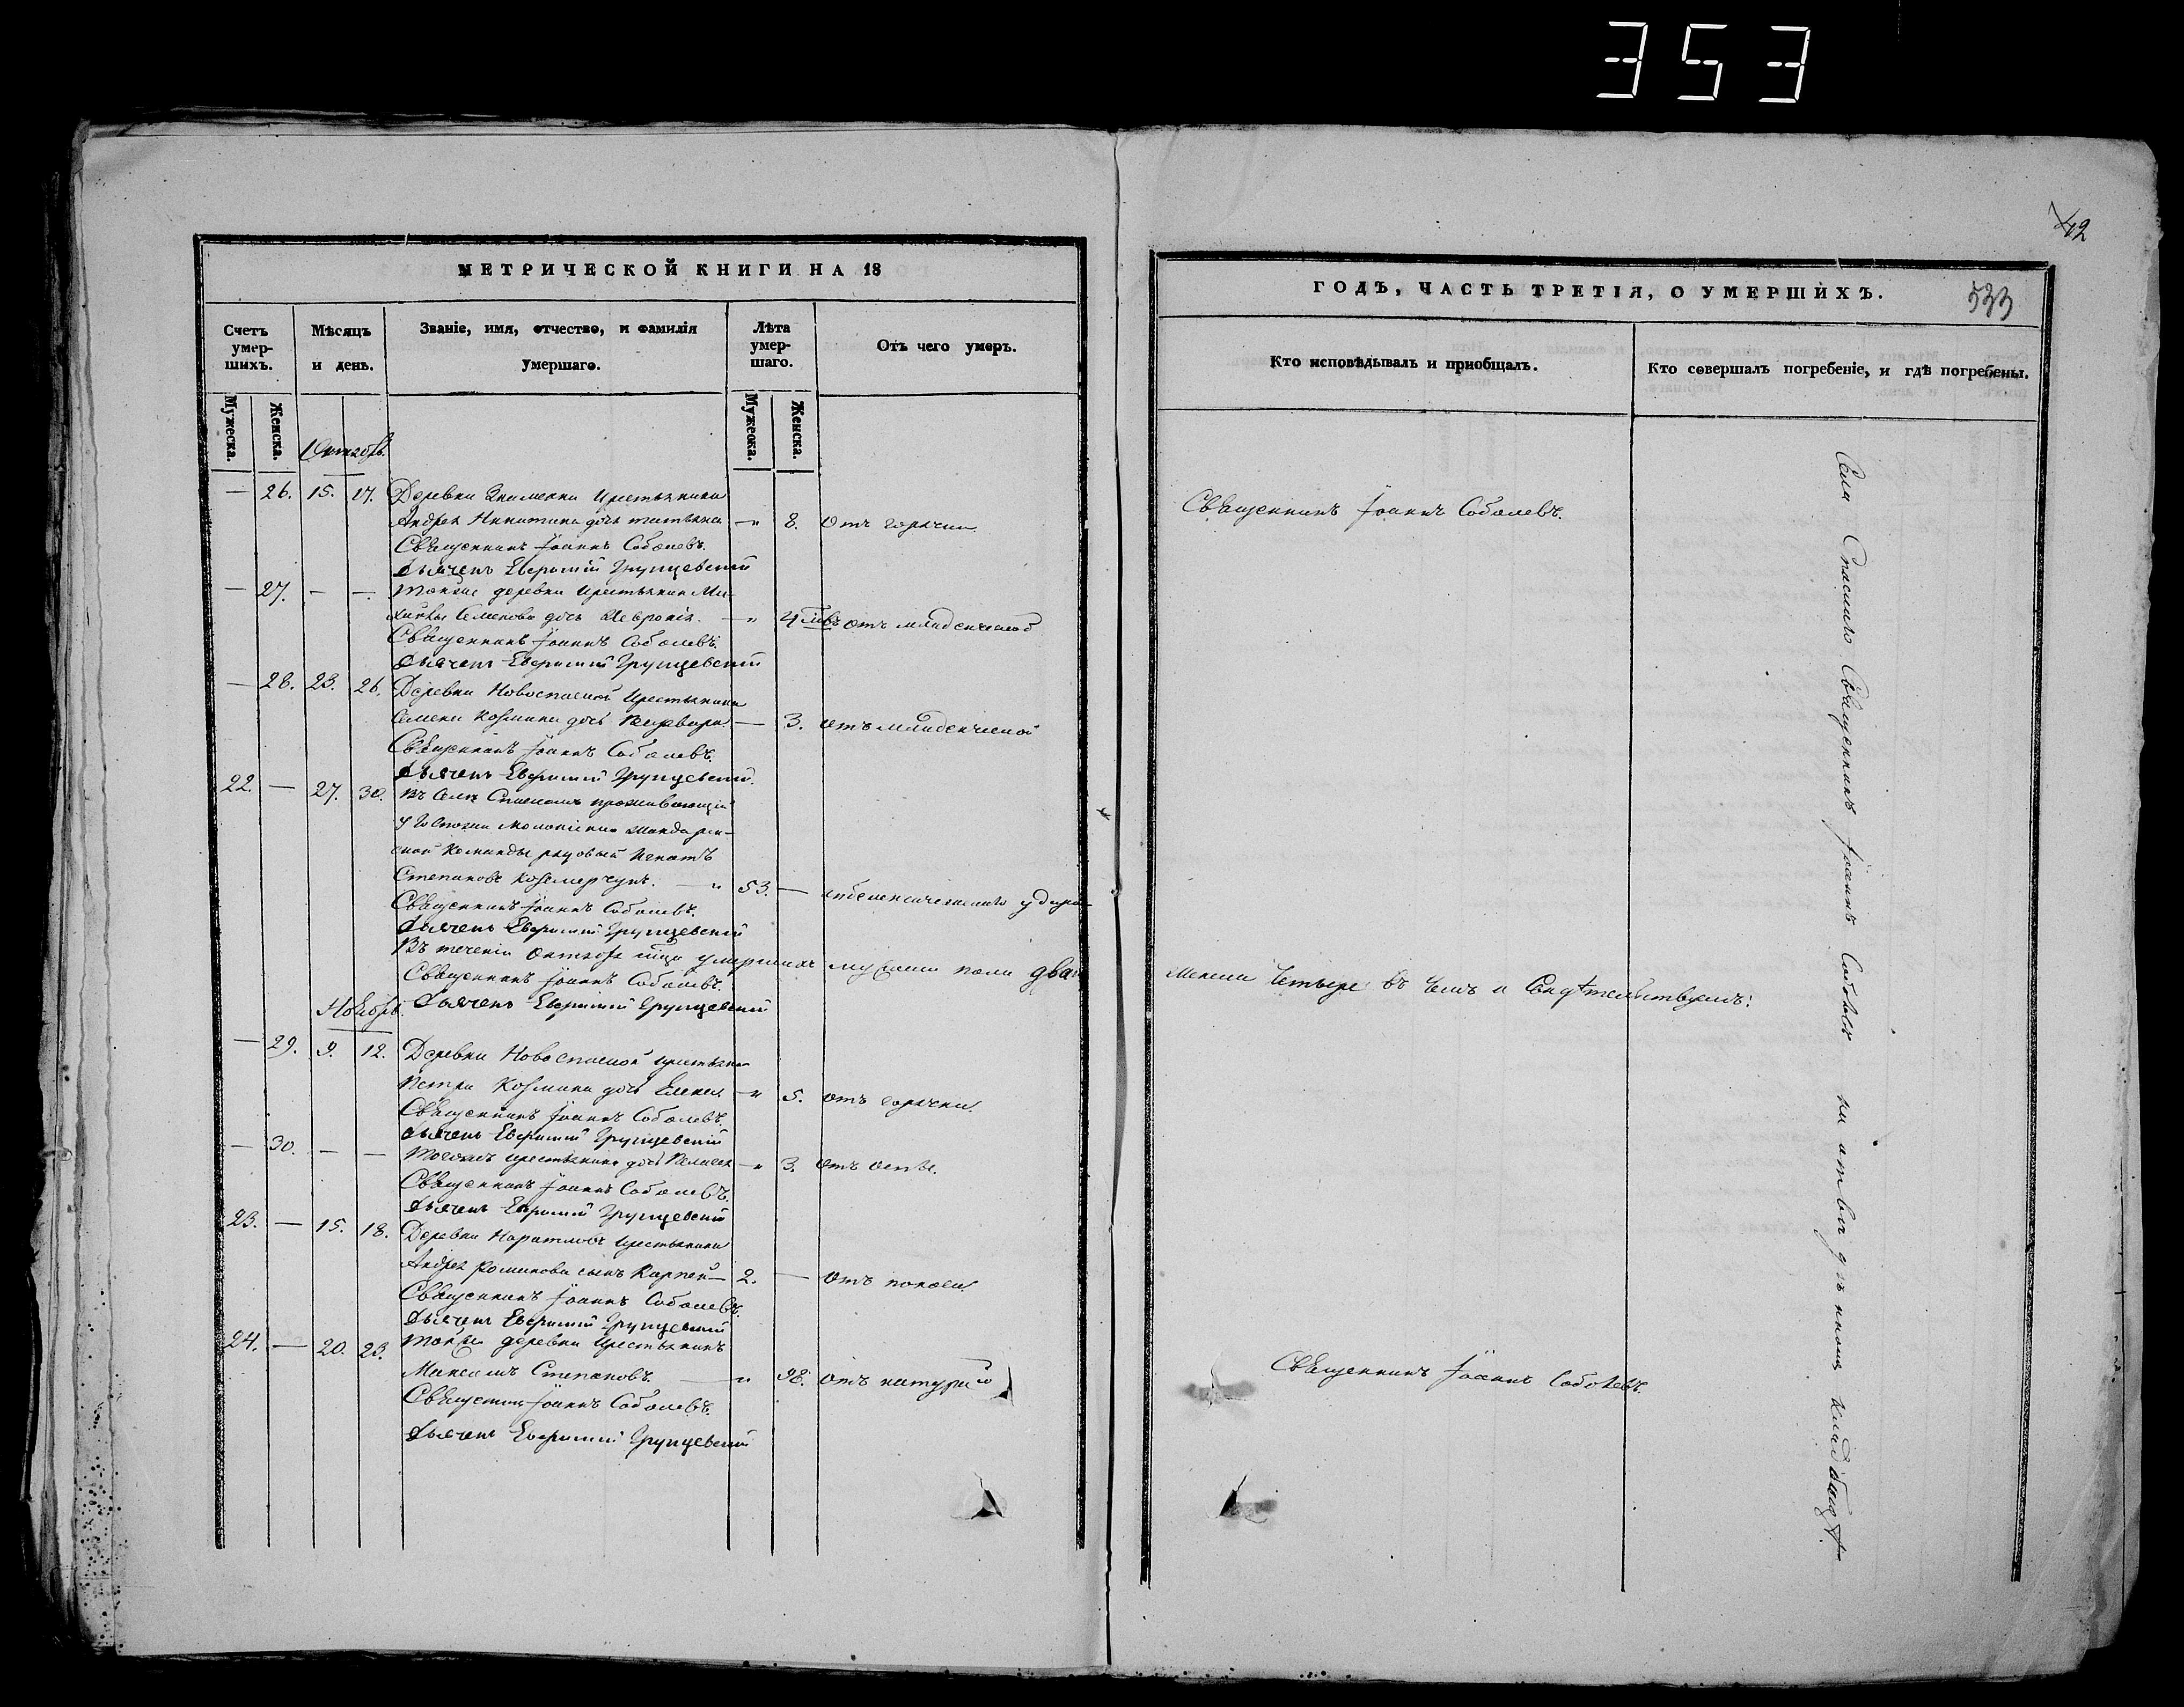 353
42
МЕТРИЧЕСКОЙ КНИГИ НА 18
Счетъ умер-шихъ.
Мѣсяцъ и день.
Званіе, имя, отчество, и фамилія умершаго.
Лѣта умер-шаго.
Отъ чего умеръ.
Мужеска.
Женска.
Мужеска.
Женска.
Октябрь.
— 26. 15. 17. Деревни Знаменки крестьянина
Андрея Никитина дочь татьяна —„ 8. отъ горячки
Священникъ Іоаннъ Соболевъ.
Дьячекъ Евфимій Грунцевскій
— 27. — — тойже деревни крестьянина Ми-
хайлы Семенова дочь Феврония. —„ 4 мцъ отъ младенческой
Священникъ Іоаннъ Соболевъ.
Дьячекъ Евфимій Грунцевскій
— 28. 23. 26. Деревни Новоспаской крестьянина
Семена Козмина дочь Варвара — 3. отъ младенческой
Священникъ Іоаннъ Соболевъ.
Дьячекъ Евфимій Грунцевскій.
22. — 27. 30. Въ Селѣ Спаскомъ проживающій
у Госпожи
ской Команды рядовый Игнатъ
Степановъ —„ 53. — апоплексическаго удара
Священникъ Іоаннъ Соболевъ.
Дьячекъ Евфимій Грунцевскій
Въ теченіи октября мца умершихъ мужеска пола два
Священникъ Іоаннъ Соболевъ.
Ноябрь. Дьячекъ Евфимій Грунцевскій
— 29. 9. 12. Деревни Новоспаской крестьянина
Петра Козмина дочь Елена —„ 5. отъ горячки
Священникъ Іоаннъ Соболевъ.
Дьячекъ Евфимій Грунцевскій
— 30. — — тогожъ крестьянина дочь Пелагея —„ 3. отъ оспы.
Священникъ Іоаннъ Соболевъ.
Дьячекъ Евфимій Грунцевскій
23. — 15. 18. Деревни крестьянина
Андрея Романова сынъ Карпей — 2. — отъ поноса
Священникъ Іоаннъ Соболевъ.
Дьячекъ Евфимій Грунцевскій
24. — 20. 23. тойже деревни крестьянинъ
Максимъ Степановъ. —„ 98. отъ натуры
Священникъ Іоаннъ Соболевъ.
Дьячекъ Евфимій Грунцевскій
ГОДЪ, ЧАСТЬ ТРЕТІЯ, О УМЕРШИХЪ.
533
Кто исповѣдывалъ и приобщалъ.
Кто совершалъ погребеніе, и гдѣ погребены.
Священникъ Іоаннъ Соболевъ.
женска четыре въ чемъ и Свидѣтельствуемъ:
Священникъ Іоаннъ Соболевъ.
Села Спаскаго Священникъ Іоаннъ Соболевъ на отведенномъ кладбищѣ